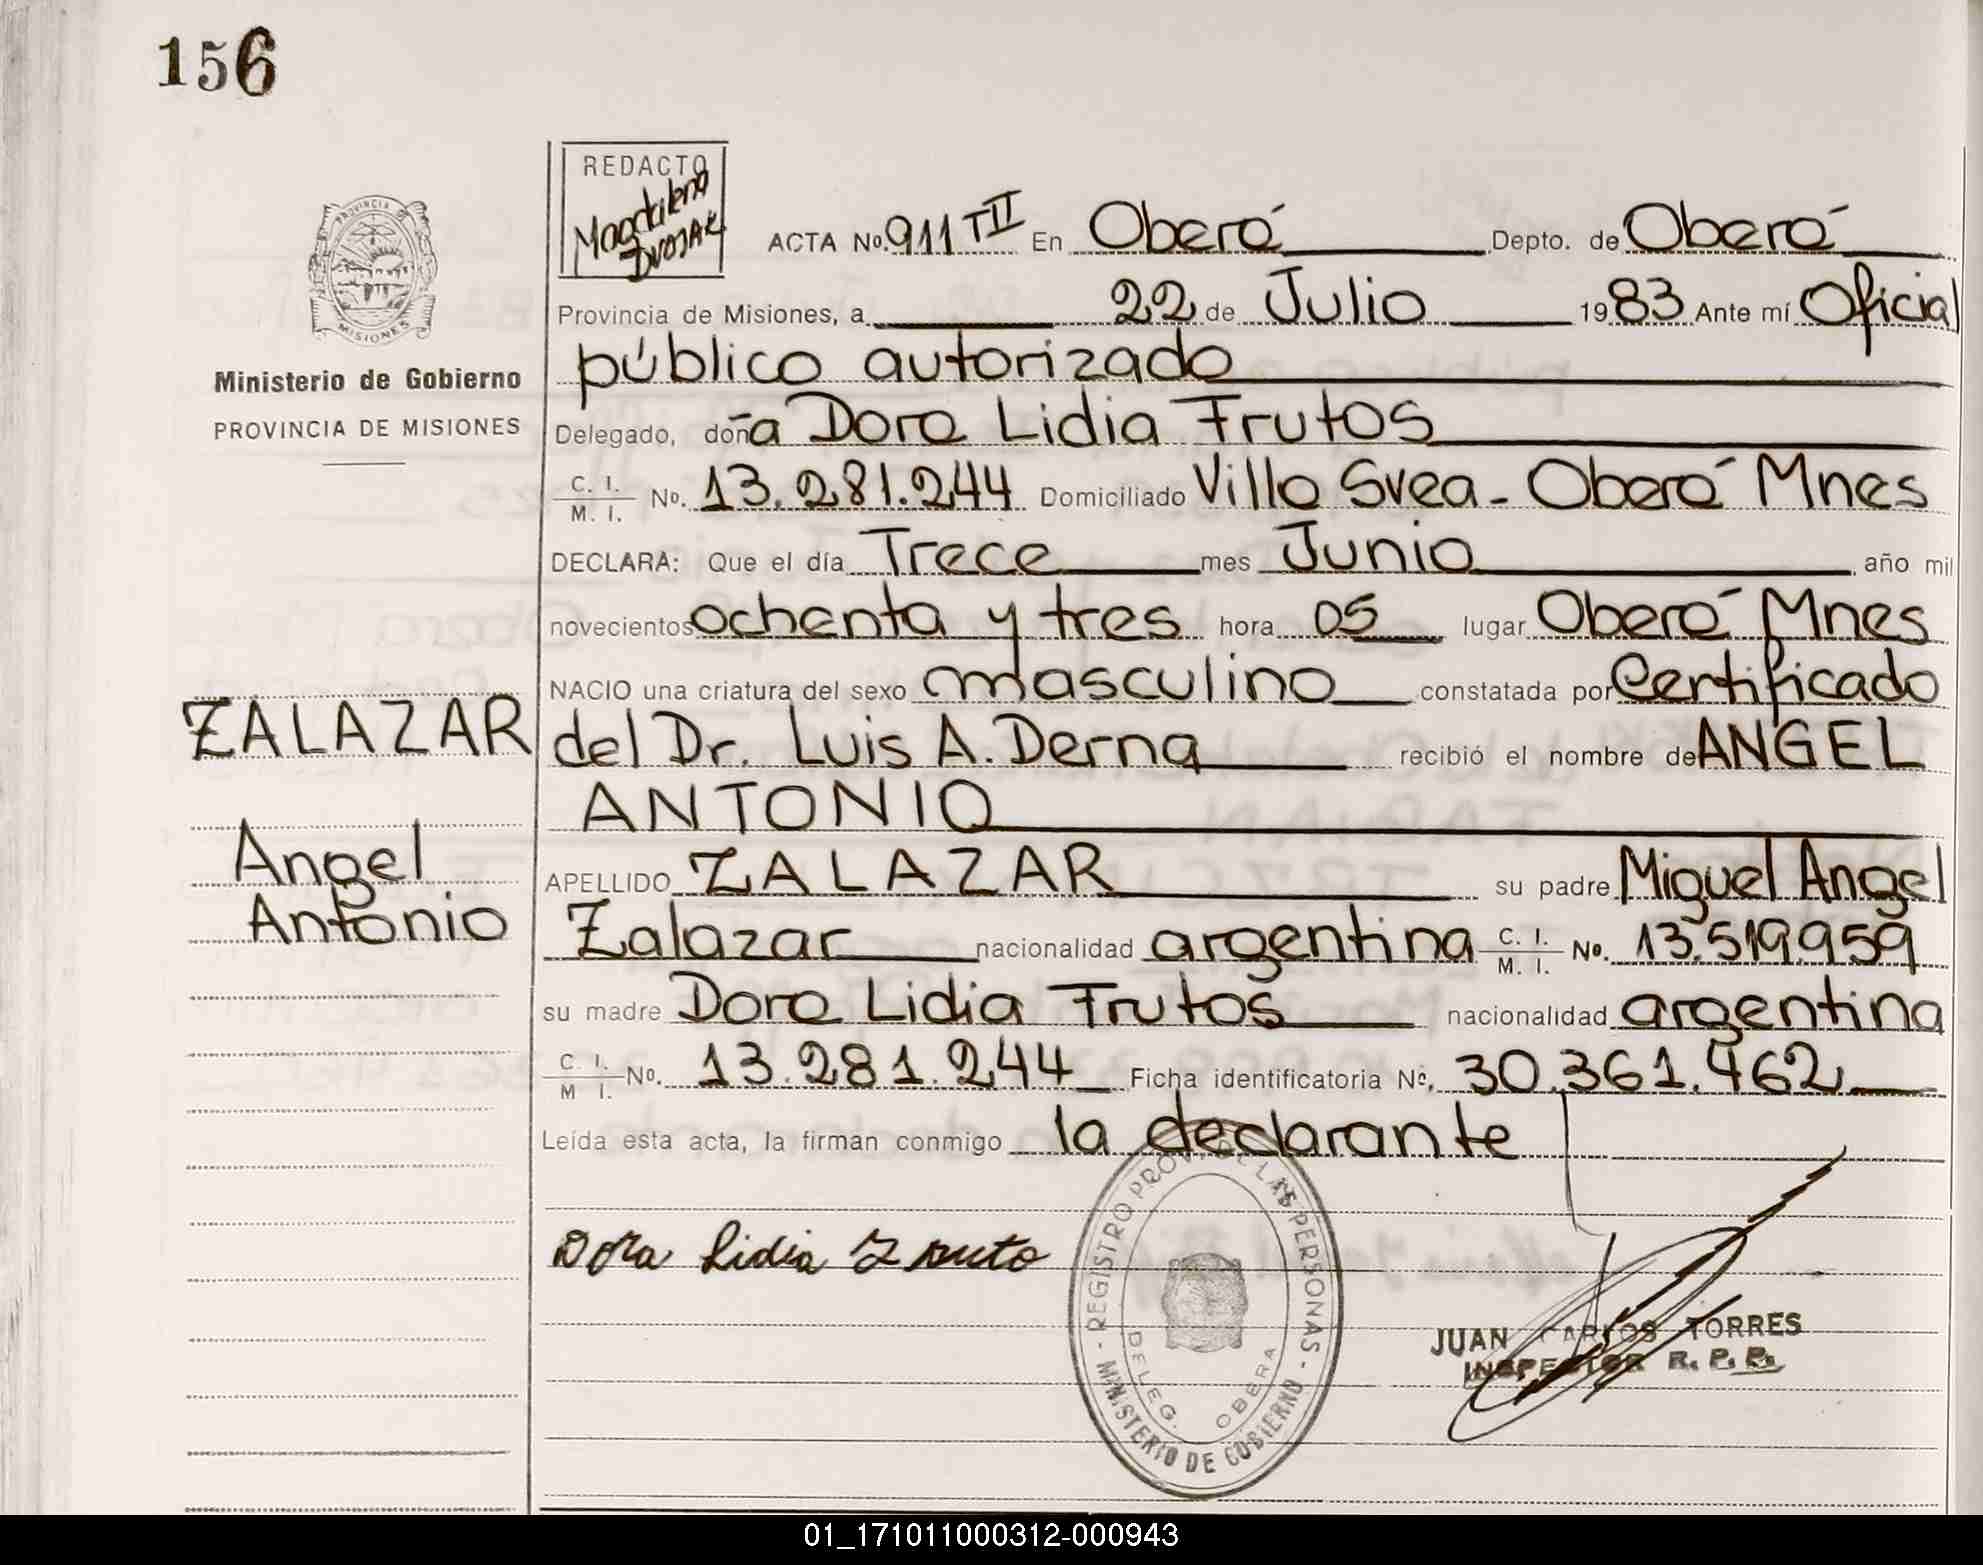 156
REDACTO
Magdalena
DVOJAK
PROVINCIA DE
MISIONES
Ministerio de Gobierno
PROVINCIA DE MISIONES
ACTA No. 911 TII En Oberá Depto. de Oberá
Provincia de Misiones, a 22 de Julio 1983 Ante mí Oficial
público autorizado
Delegado, doña Dora Lidia Frutos
C. I. / M. I. No. 13.281.244 Domiciliado Villa Svea - Oberá Mnes
DECLARA: Que el día Trece mes Junio año mil
novecientos ochenta y tres hora 05 lugar Oberá Mnes
NACIO una criatura del sexo masculino constatada por Certificado
ZALAZAR
del Dr. Luis A. Derna recibió el nombre de ANGEL
ANTONIO
Angel
Antonio
APELLIDO ZALAZAR su padre Miguel Angel
Zalazar nacionalidad argentina C. I. / M. I. No. 13.519.959
su madre Dora Lidia Frutos nacionalidad argentina
C. I. / M I. No. 13.281.244 Ficha identificatoria No. 30.361.462
Leída esta acta, la firman conmigo la declarante
Dora Lidia Fruto
- REGISTRO PROV. DE LAS PERSONAS - MINISTERIO DE GOBIERNO
DELEG. OBERA
JUAN CARLOS TORRES
INSPECTOR R. P. P.
01_171011000312-000943